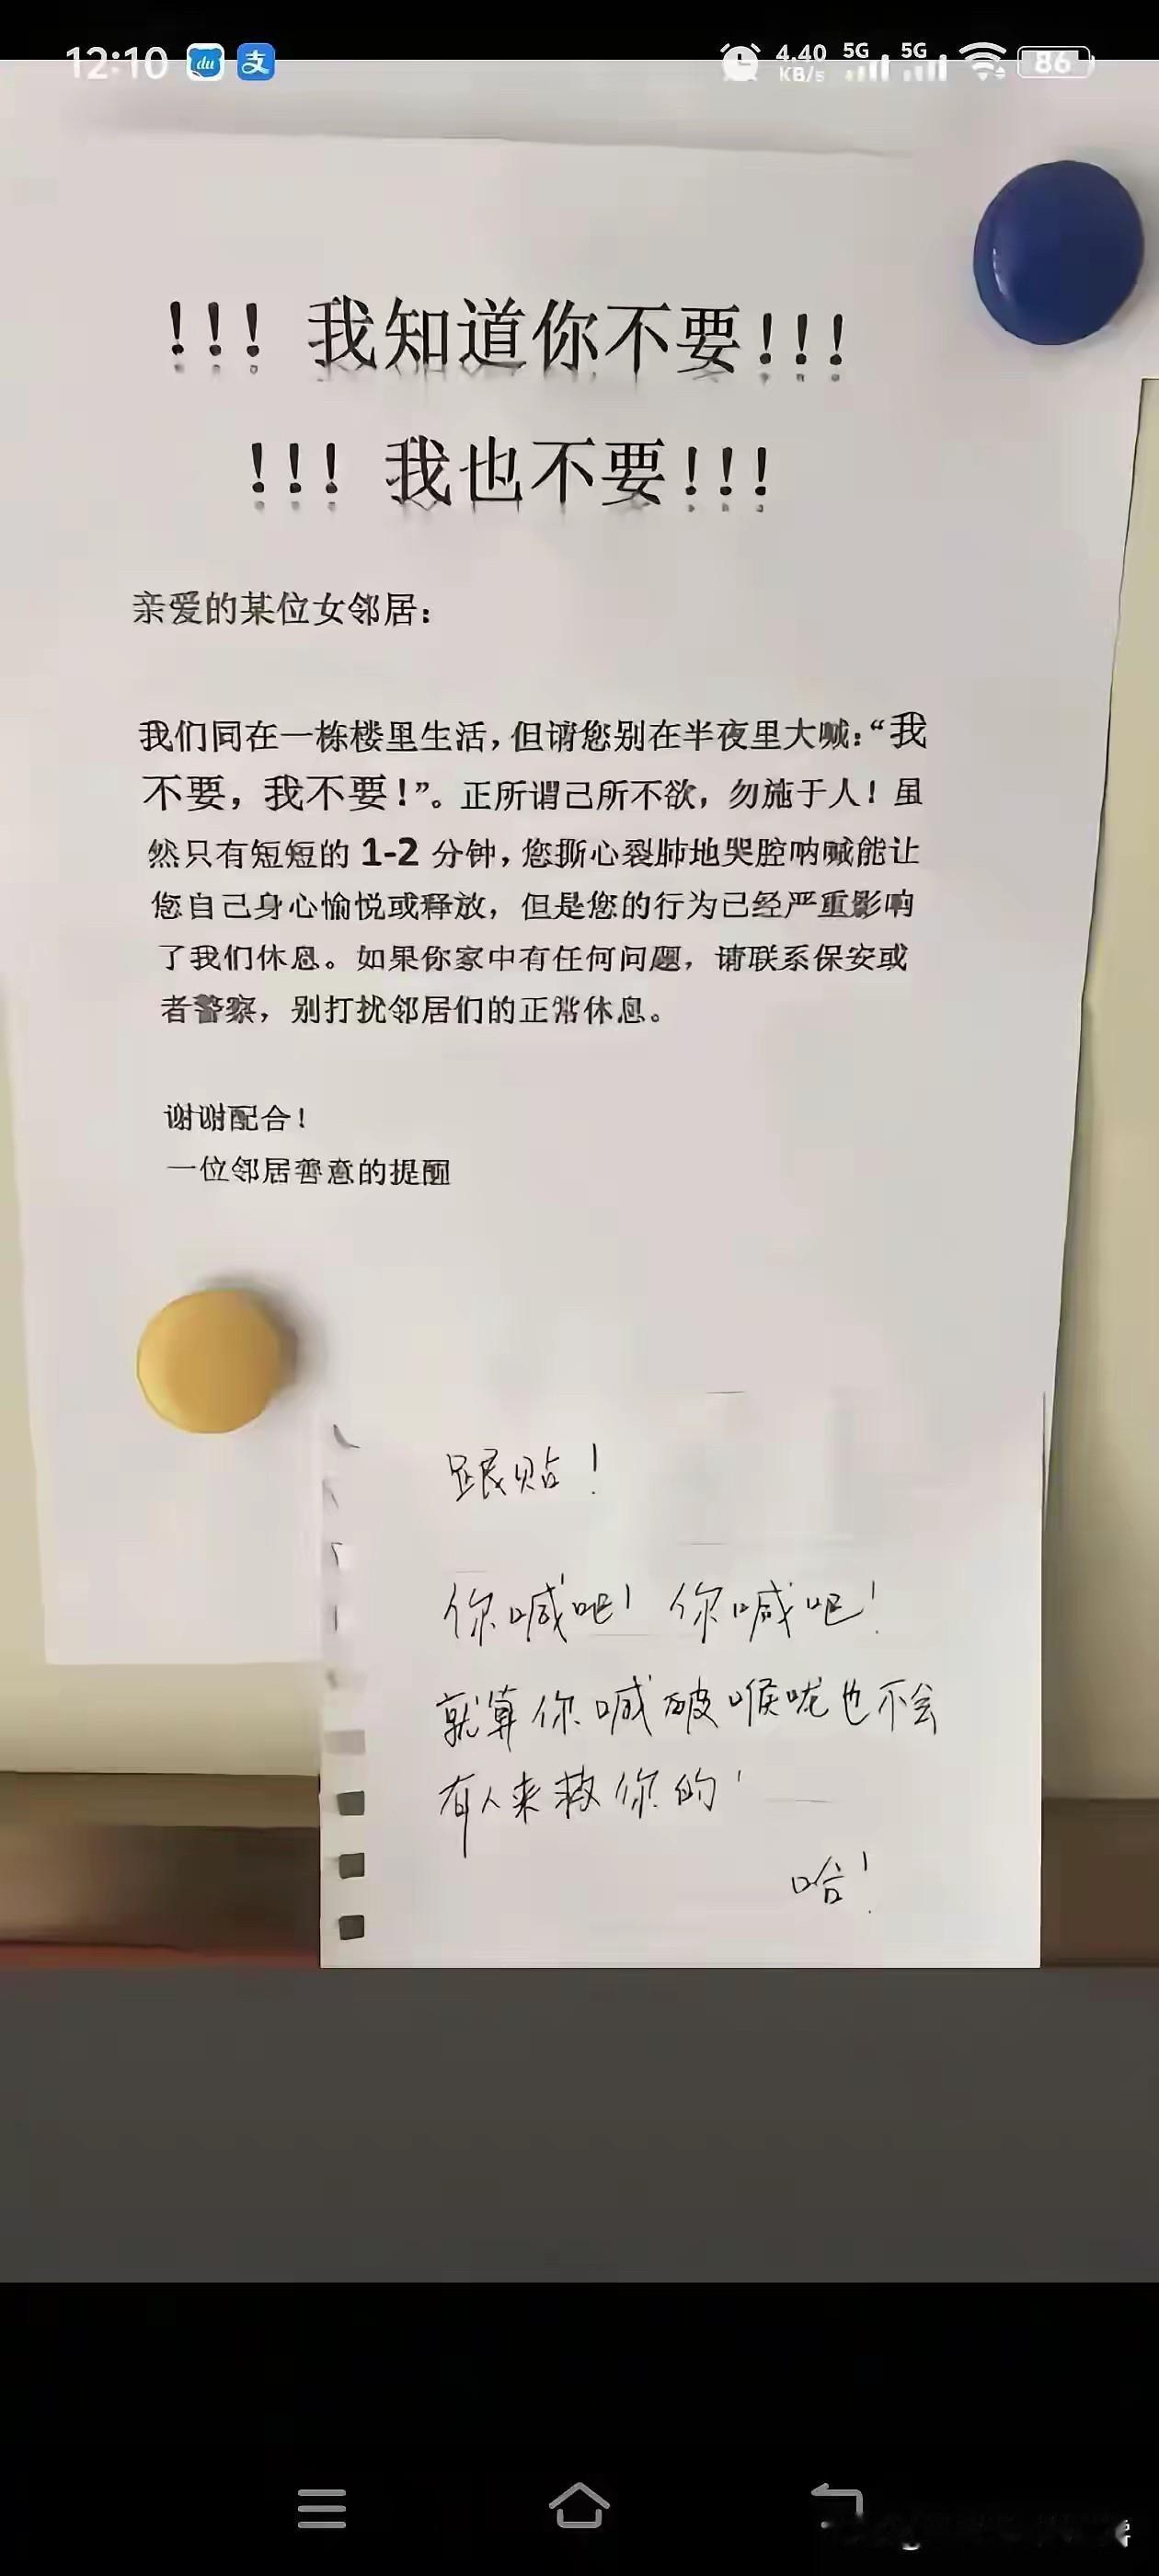 12:10
du
支
4.40
KB/s
5G
5G
86
!!! 我知道你不要!!!
!!! 我也不要!!!
亲爱的某位女邻居：
我们同在一栋楼里生活，但请您别在半夜里大喊：“我
不要，我不要！”。正所谓己所不欲，勿施于人！虽
然只有短短的 1-2 分钟，您撕心裂肺地哭腔呐喊能让
您自己身心愉悦或释放，但是您的行为已经严重影响
了我们休息。如果你家中有任何问题，请联系保安或
者警察，别打扰邻居们的正常休息。
谢谢配合！
一位邻居善意的提醒
跟贴！
你喊吧！你喊吧！
就算你喊破喉咙也不会
有人来救你的！
哈！